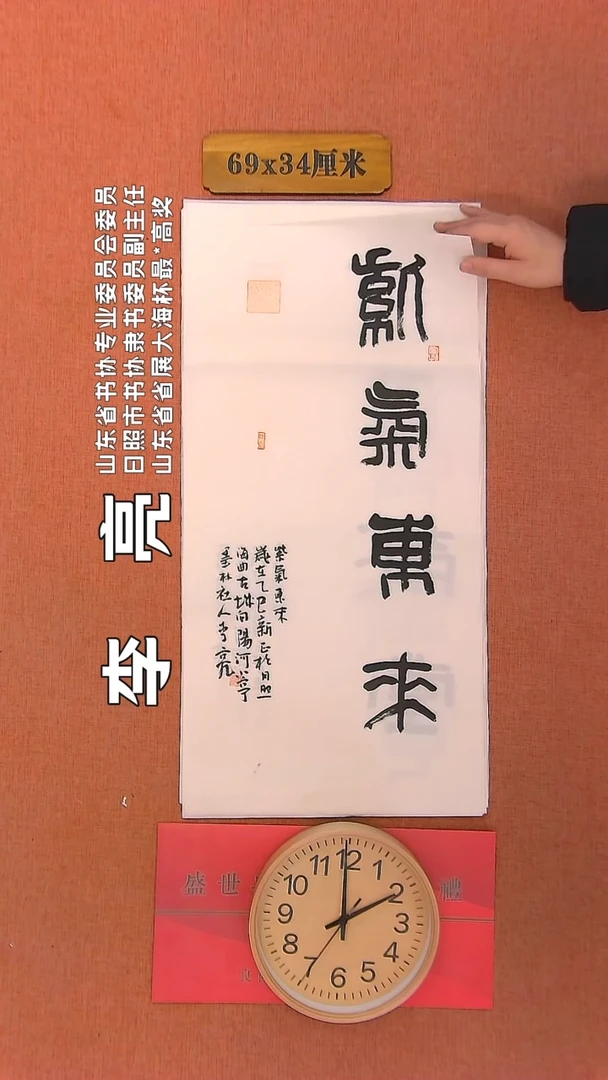 69x34厘米
山东省书协专业委员会委员
日照市书协隶书委员副主任
山东省省展大海杯最*高奖
李 亮
紫氣東来
紫氣東来
歲在乙巳新正於日照
海曲古城向陽河
社人李亮
盛世 禮
12
1
2
3
4
5
6
7
8
9
10
11